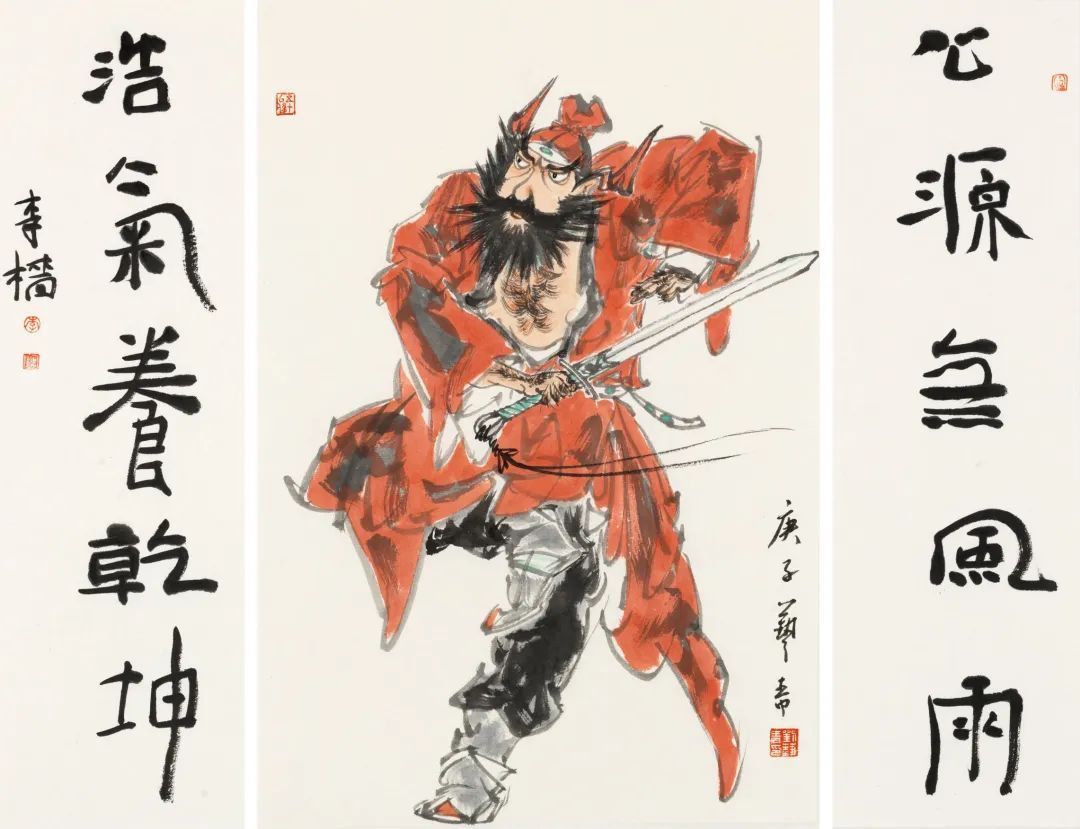 心源無風雨
庚子
浩氣養乾坤
李檣